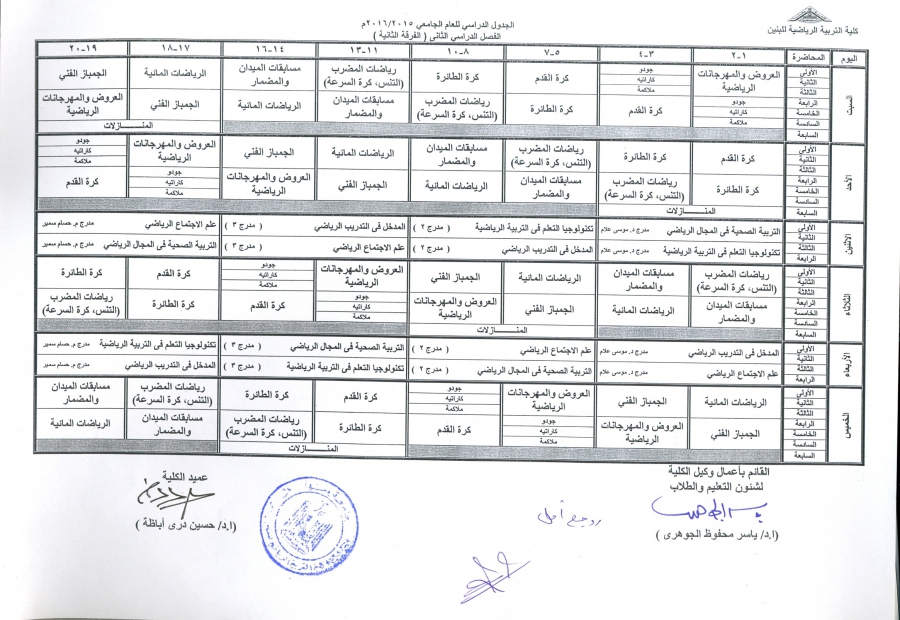 كلية التربية الرياضية للبنين
الجدول الدراسي للعام الجامعي ٢٠١٦/٢٠١٥م
الفصل الدراسي الثاني ( الفرقة الثانية )
اليوم المحاضرة ١-٢ ٣-٤ ٥-٧ ٨-١٠ ١١-١٣ ١٤-١٦ ١٧-١٨ ١٩-٢٠
السبت
الأولي الثانية الثالثة
العروض والمهرجانات الرياضية
جودو
كاراتيه
ملاكمة
كرة القدم
كرة الطائرة
رياضات المضرب (التنس، كرة السرعة)
مسابقات الميدان والمضمار
الرياضات المائية
الجمباز الفني
الرابعة الخامسة السادسة
جودو
كاراتيه
ملاكمة
كرة القدم
كرة الطائرة
رياضات المضرب (التنس، كرة السرعة)
مسابقات الميدان والمضمار
الرياضات المائية
الجمباز الفني
العروض والمهرجانات الرياضية
السابعة
المنـــــازلات
الأحد
الأولي الثانية الثالثة
كرة القدم
كرة الطائرة
رياضات المضرب (التنس، كرة السرعة)
مسابقات الميدان والمضمار
الرياضات المائية
الجمباز الفني
العروض والمهرجانات الرياضية
جودو
كاراتيه
ملاكمة
الرابعة الخامسة السادسة
كرة الطائرة
رياضات المضرب (التنس، كرة السرعة)
مسابقات الميدان والمضمار
الرياضات المائية
الجمباز الفني
العروض والمهرجانات الرياضية
جودو
كاراتيه
ملاكمة
كرة القدم
السابعة
المنـــــازلات
الاثنين
الأولي الثانية
التربية الصحية فى المجال الرياضي مدرج د. موسى علام
تكنولوجيا التعلم فى التربية الرياضية ( مدرج ٢ )
المدخل فى التدريب الرياضي ( مدرج ٣ )
علم الاجتماع الرياضي مدرج م. حسام سمير
الثالثة الرابعة
تكنولوجيا التعلم فى التربية الرياضية مدرج د. موسى علام
المدخل فى التدريب الرياضي ( مدرج ٢ )
علم الاجتماع الرياضي ( مدرج ٣ )
التربية الصحية فى المجال الرياضي مدرج م. حسام سمير
الثلاثاء
الأولي الثانية الثالثة
رياضات المضرب (التنس، كرة السرعة)
مسابقات الميدان والمضمار
الرياضات المائية
الجمباز الفني
العروض والمهرجانات الرياضية
جودو
كاراتيه
ملاكمة
كرة القدم
كرة الطائرة
الرابعة الخامسة السادسة
مسابقات الميدان والمضمار
الرياضات المائية
الجمباز الفني
العروض والمهرجانات الرياضية
جودو
كاراتيه
ملاكمة
كرة القدم
كرة الطائرة
رياضات المضرب (التنس، كرة السرعة)
السابعة
المنـــــازلات
الأربعاء
الأولي الثانية
المدخل فى التدريب الرياضي مدرج د. موسى علام
علم الاجتماع الرياضي ( مدرج ٢ )
التربية الصحية فى المجال الرياضي ( مدرج ٣ )
تكنولوجيا التعلم فى التربية الرياضية مدرج م. حسام سمير
الثالثة الرابعة
علم الاجتماع الرياضي مدرج د. موسى علام
التربية الصحية فى المجال الرياضي ( مدرج ٢ )
تكنولوجيا التعلم فى التربية الرياضية ( مدرج ٣ )
المدخل فى التدريب الرياضي مدرج م. حسام سمير
الخميس
الأولي الثانية الثالثة
الرياضات المائية
الجمباز الفني
العروض والمهرجانات الرياضية
جودو
كاراتيه
ملاكمة
كرة القدم
كرة الطائرة
رياضات المضرب (التنس، كرة السرعة)
مسابقات الميدان والمضمار
الرابعة الخامسة السادسة
الجمباز الفني
العروض والمهرجانات الرياضية
جودو
كاراتيه
ملاكمة
كرة القدم
كرة الطائرة
رياضات المضرب (التنس، كرة السرعة)
مسابقات الميدان والمضمار
الرياضات المائية
السابعة
المنـــــازلات
القائم بأعمال وكيل الكلية
لشئون التعليم والطلاب
(ا.د/ ياسر محفوظ الجوهرى )
عميد الكلية
(ا.د/ حسين درى أباظة )